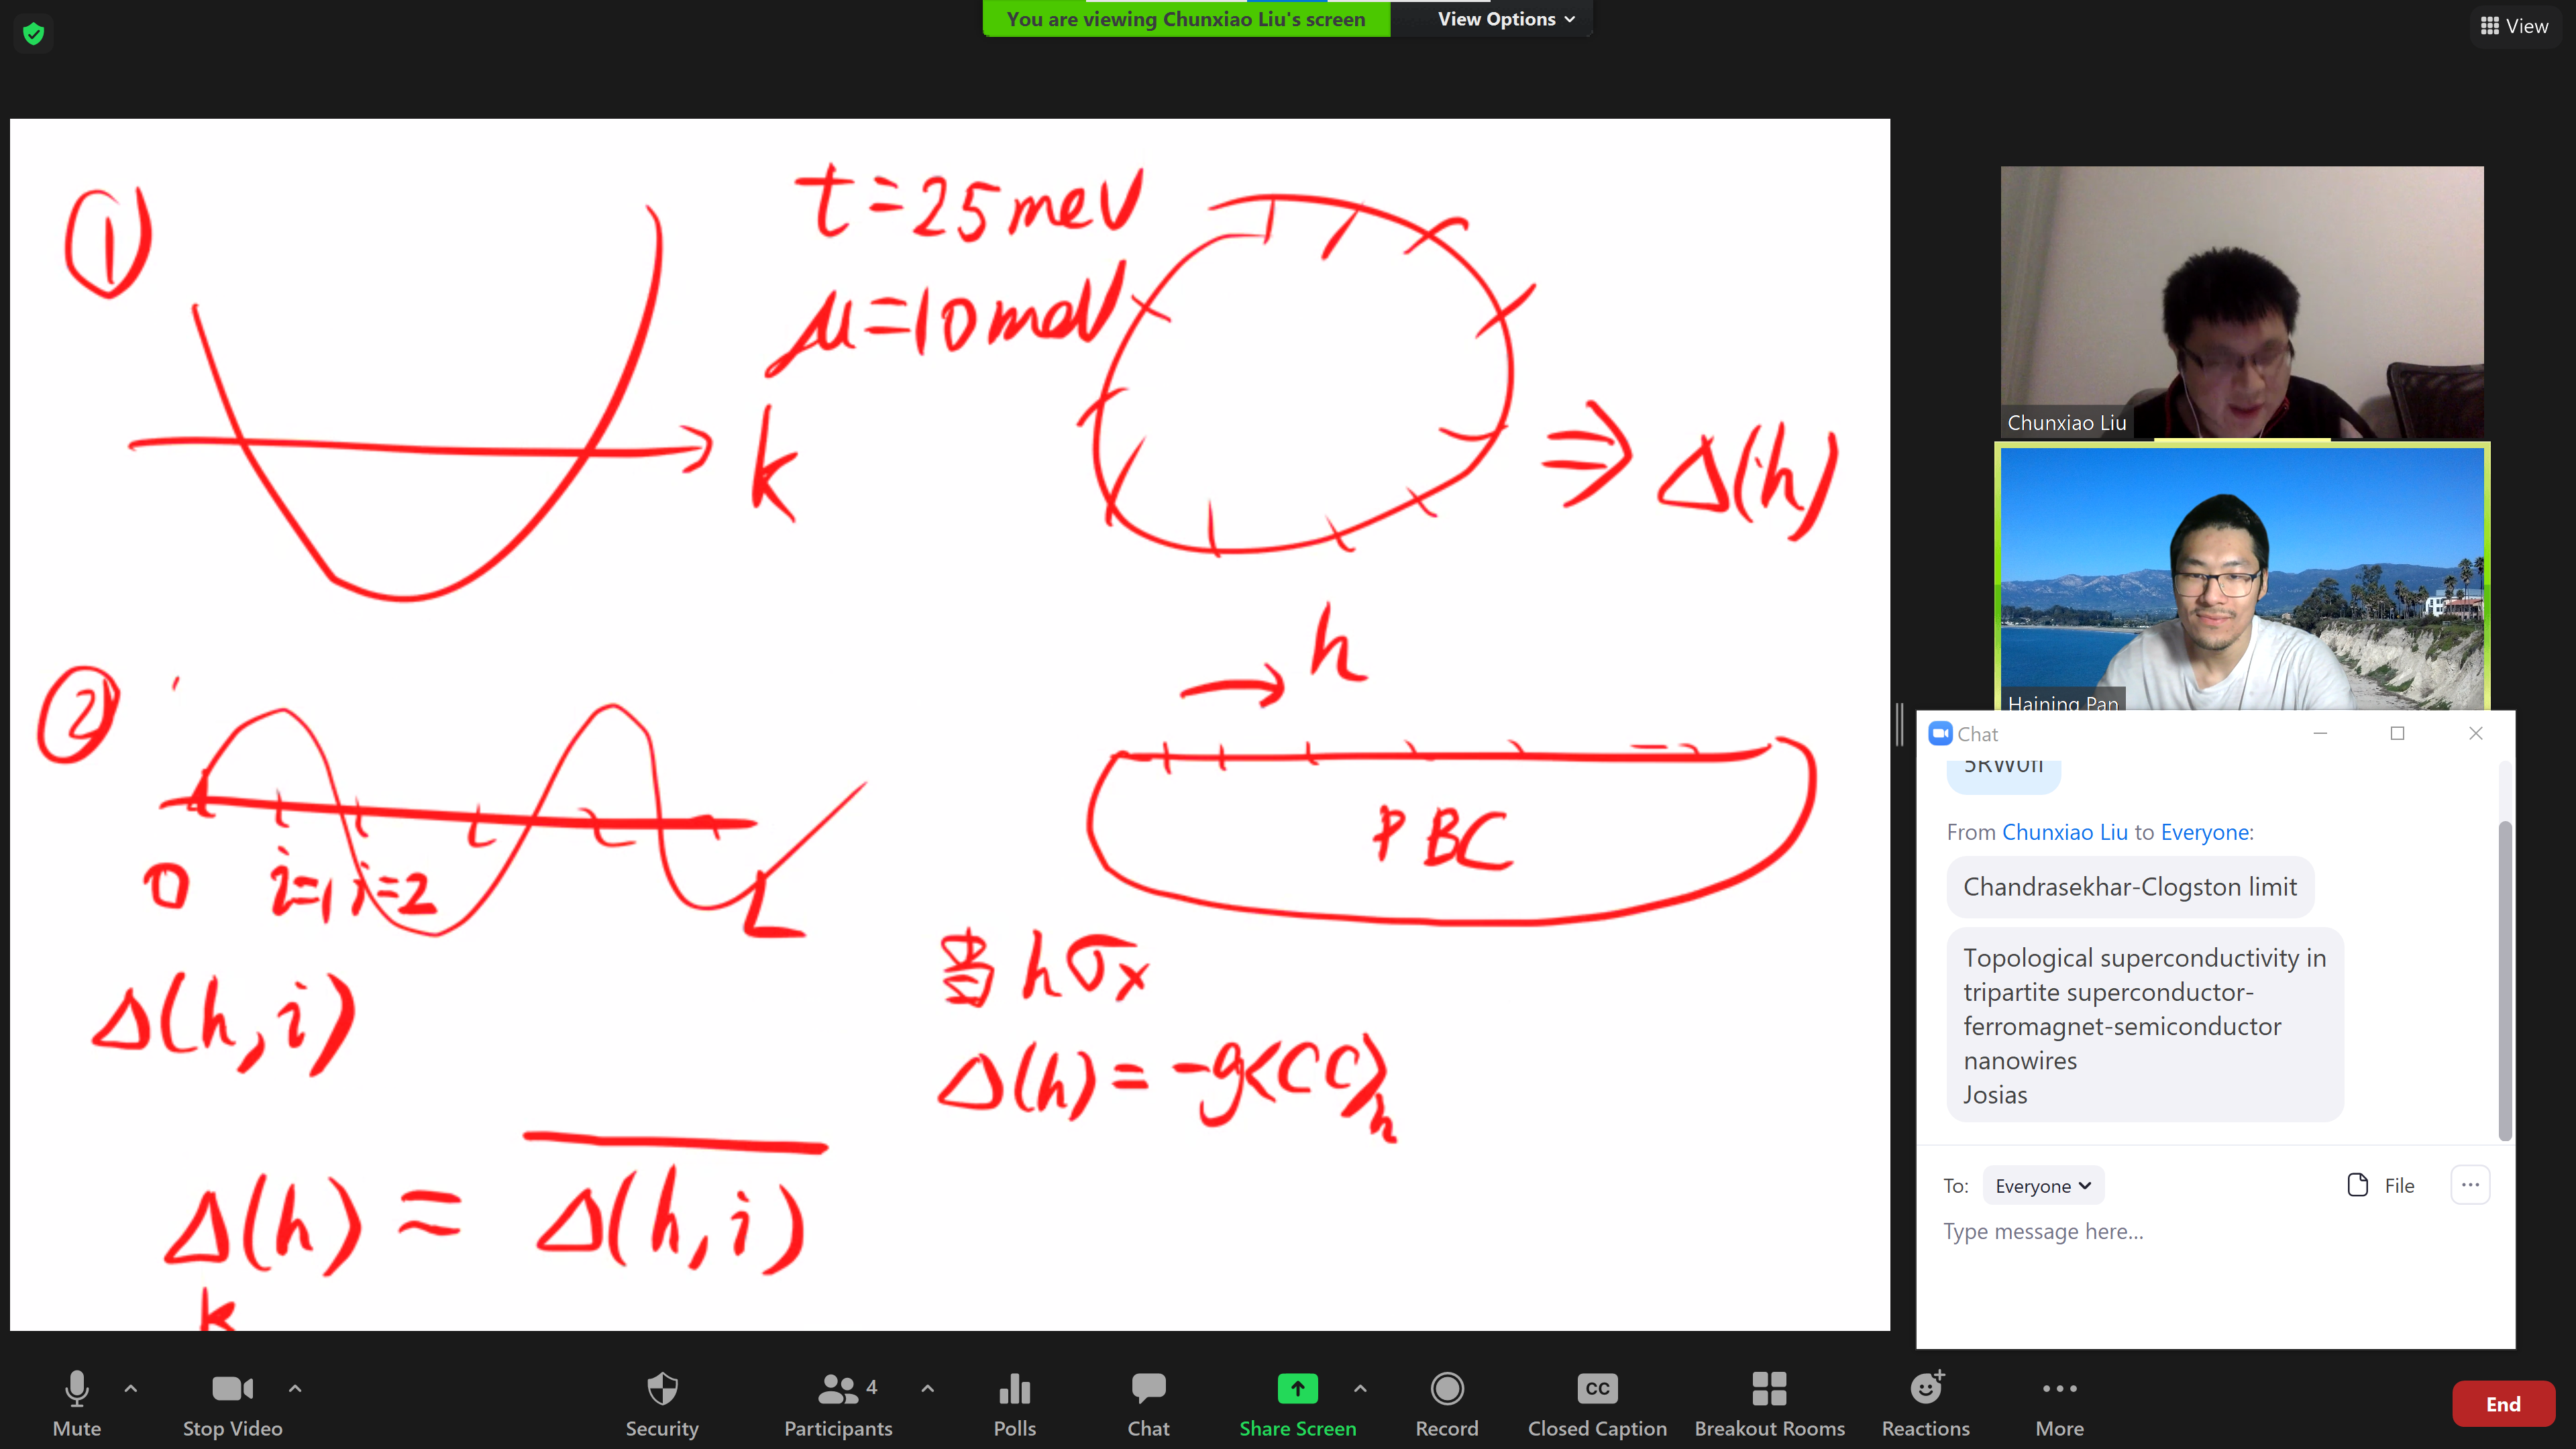 You are viewing Chunxiao Liu's screen
View Options
View
①
t=25meV
μ=10meV
k
⇒ Δ(h)
②
h
0
i=1 i=2
L
PBC
Δ(h,i)
当 hσx
Δ(h) = -g<CC>h
Δ(h) = Δ(h,i)
k
Chunxiao Liu
Haining Pan
Chat
From Chunxiao Liu to Everyone:
Chandrasekhar-Clogston limit
Topological superconductivity in
tripartite superconductor-
ferromagnet-semiconductor
nanowires
Josias
To: Everyone
File
Type message here...
Mute
Stop Video
Security
Participants 4
Polls
Chat
Share Screen
Record
CC
Closed Caption
Breakout Rooms
Reactions
More
End